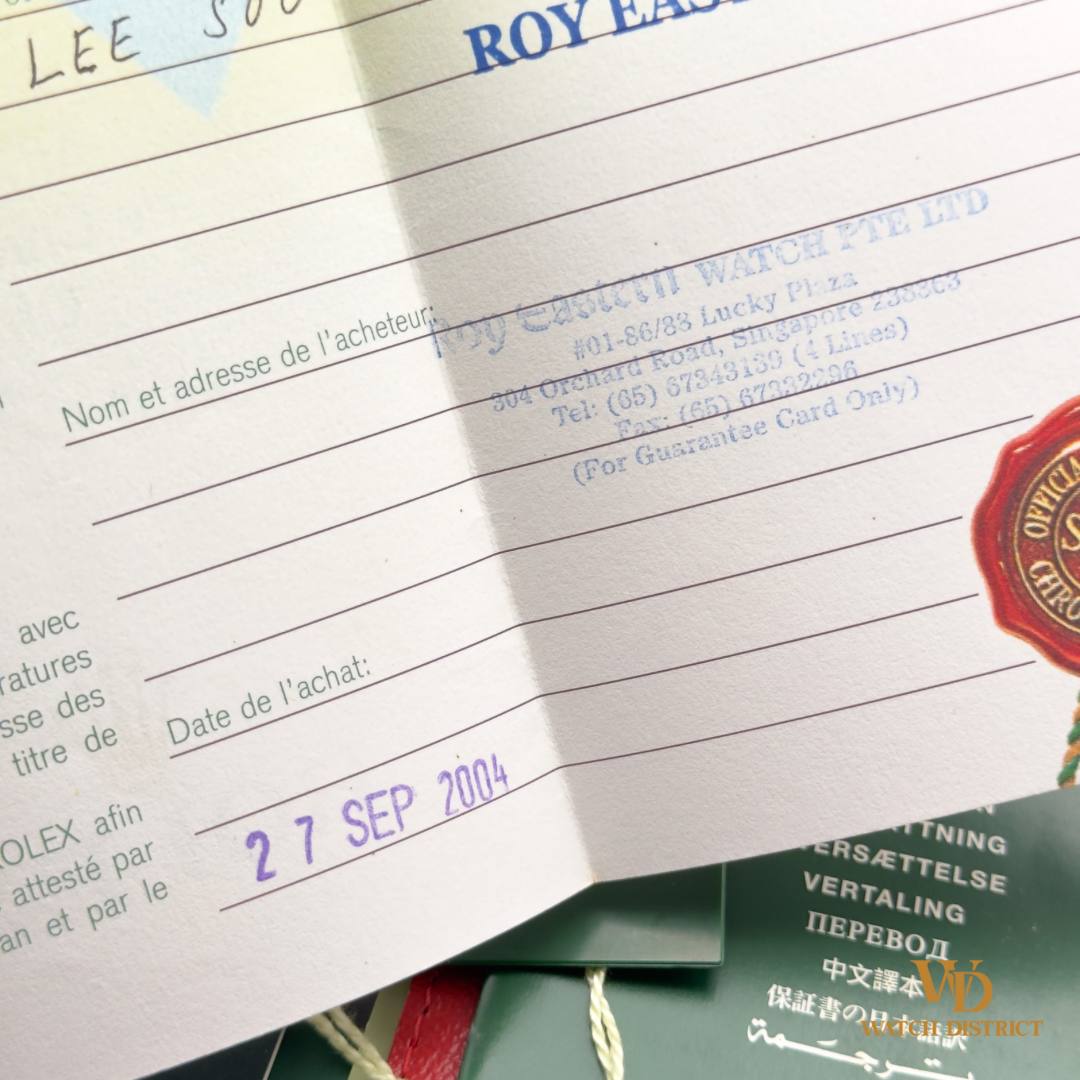 LEE SOO
ROY EAS
Nom et adresse de l'acheteur:
Roy Eastern WATCH PTE LTD
#01-86/88 Lucky Plaza
304 Orchard Road, Singapore 238863
Tel: (65) 67343139 (4 Lines)
Fax: (65) 67332296
(For Guarantee Card Only)
OFFICIA
CHRO
avec
ratures
sse des
titre de
Date de l'achat:
27 SEP 2004
OLEX afin
attesté par
an et par le
TTNING
ERSÆTTELSE
VERTALING
ПЕРЕВОД
中文譯本
保証書の日本語訳
ترجمة
WD
WATCH DISTRICT